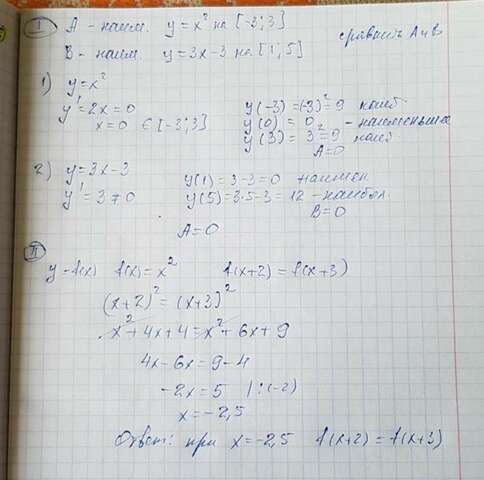 I А - наим. y = x² на [-3; 3]
сравнить А и В
В - наим. y = 3x - 3 на [1, 5]
1) y = x²
y' = 2x = 0
x = 0 ∈ [-3; 3]
y(-3) = (-3)² = 9 наиб
y(0) = 0 - наименьшее
y(3) = 3² = 9 наиб
А = 0
2) y = 3x - 3
y' = 3 ≠ 0
y(1) = 3 - 3 = 0 наимен
y(5) = 3·5 - 3 = 12 - наибол
В = 0
А = 0
II
y = f(x) f(x) = x² f(x+2) = f(x+3)
(x+2)² = (x+3)²
x² + 4x + 4 = x² + 6x + 9
4x - 6x = 9 - 4
-2x = 5 | : (-2)
x = -2,5
Ответ: при x = -2,5 f(x+2) = f(x+3)